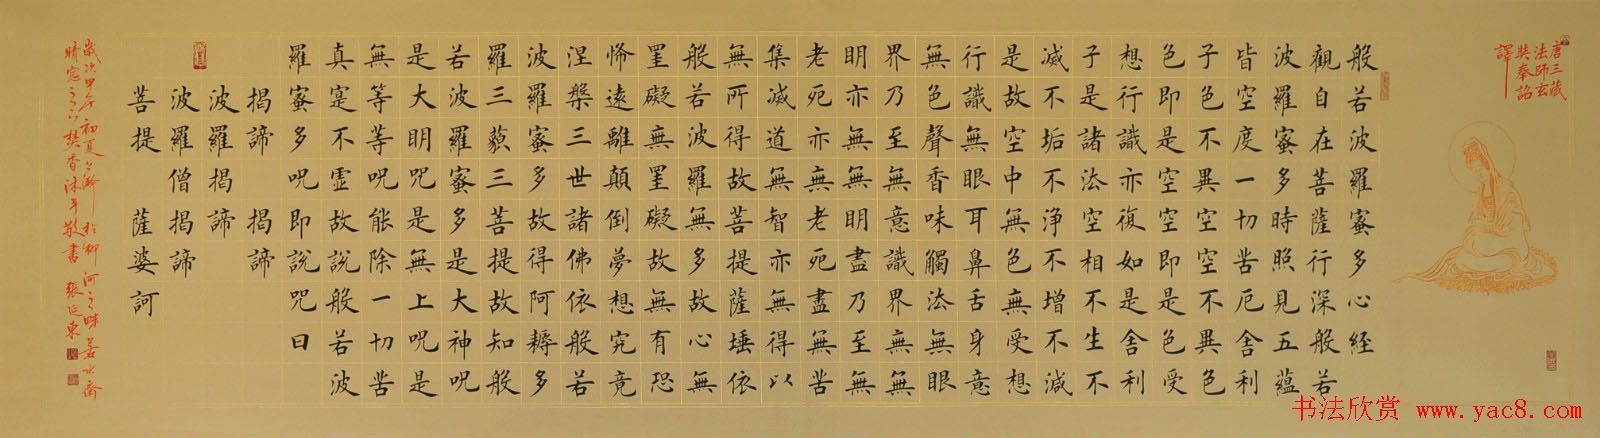 唐三藏
法師玄
奘奉詔
譯
般若波羅蜜多心經
觀自在菩薩行深般若
波羅蜜多時照見五蘊
皆空度一切苦厄舍利
子色不異空空不異色
色即是空空即是色受
想行識亦復如是舍利
子是諸法空相不生不
滅不垢不淨不增不減
是故空中無色無受想
行識無眼耳鼻舌身意
無色聲香味觸法無眼
界乃至無意識界無無
明亦無無明盡乃至無
老死亦無老死盡無苦
集滅道無智亦無得以
無所得故菩提薩埵依
般若波羅蜜多故心無
罣礙無罣礙故無有恐
怖遠離顛倒夢想究竟
涅槃三世諸佛依般若
波羅蜜多故得阿耨多
羅三藐三菩提故知般
若波羅蜜多是大神咒
是大明咒是無上咒是
無等等咒能除一切苦
真寔不虛故說般若波
羅蜜多咒即說咒曰
揭諦 揭諦
波羅揭諦
波羅僧揭諦
菩提 薩婆訶
歲次甲午初夏 於柳河之畔若水齋
晴窗之下焚香沐手敬書 張延東
书法欣赏 www.yac8.com